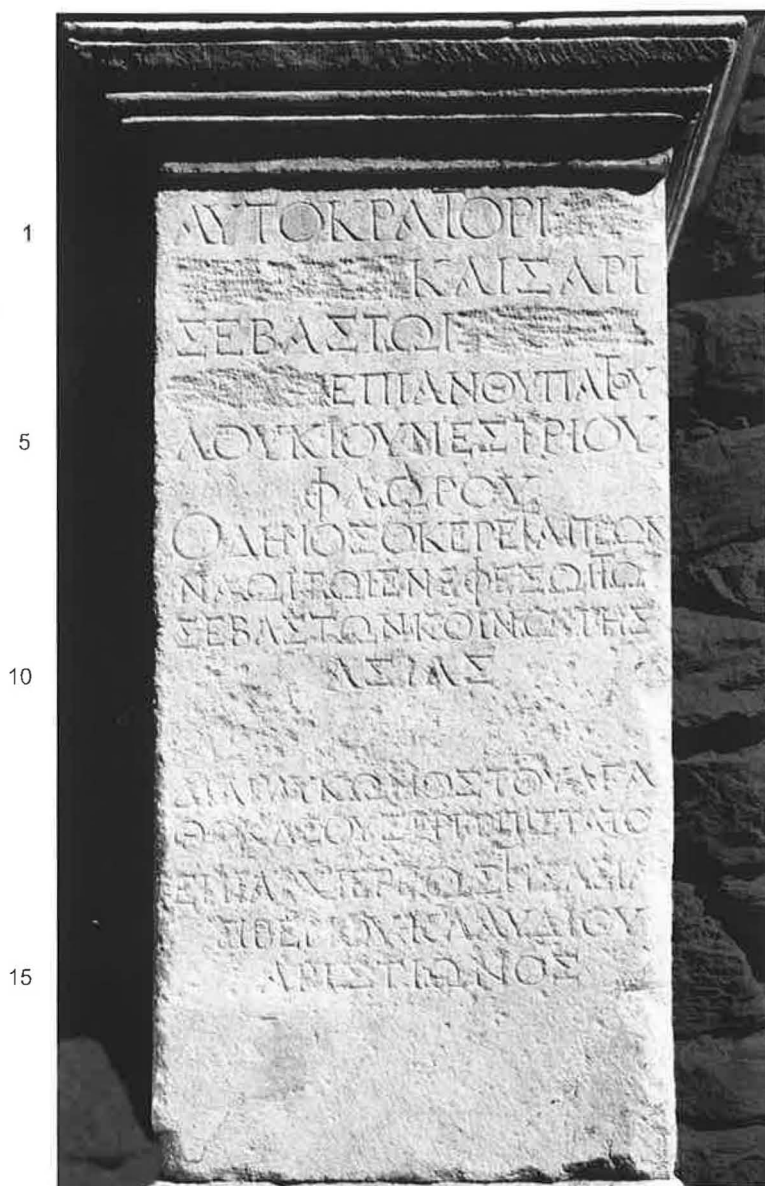 1 ΑΥΤΟΚΡΑΤΟΡΙ
ΚΑΙΣΑΡΙ
ΣΕΒΑΣΤΩΙ
ΕΠΙΑΝΘΥΠΑΤΟΥ
5 ΛΟΥΚΙΟΥΜΕΣΤΡΙΟΥ
ΦΛΩΡΟΥ
ΟΔΗΜΟΣΟΚΕΡΕΤΑΠΕΩΝ
ΝΑΩΙΤΩΙΕΝΕΦΕΣΩΙΤΩ
ΣΕΒΑΣΤΩΝΚΟΙΝΩΙΤΗΣ
10 ΑΣΙΑΣ
ΔΙΑΓΛΥΚΩΝΟΣΤΟΥΑΓΑ
ΘΟΚΛΕΟΥΣΕΡΓΕΠΙΣΤΑΤΟ
ΕΠΙΑΡΧΙΕΡΕΩΣΤΗΣΑΣΙΑ
ΤΙΒΕΡΙΟΥΚΛΑΥΔΙΟΥ
15 ΑΡΙΣΤΙΩΝΟΣ